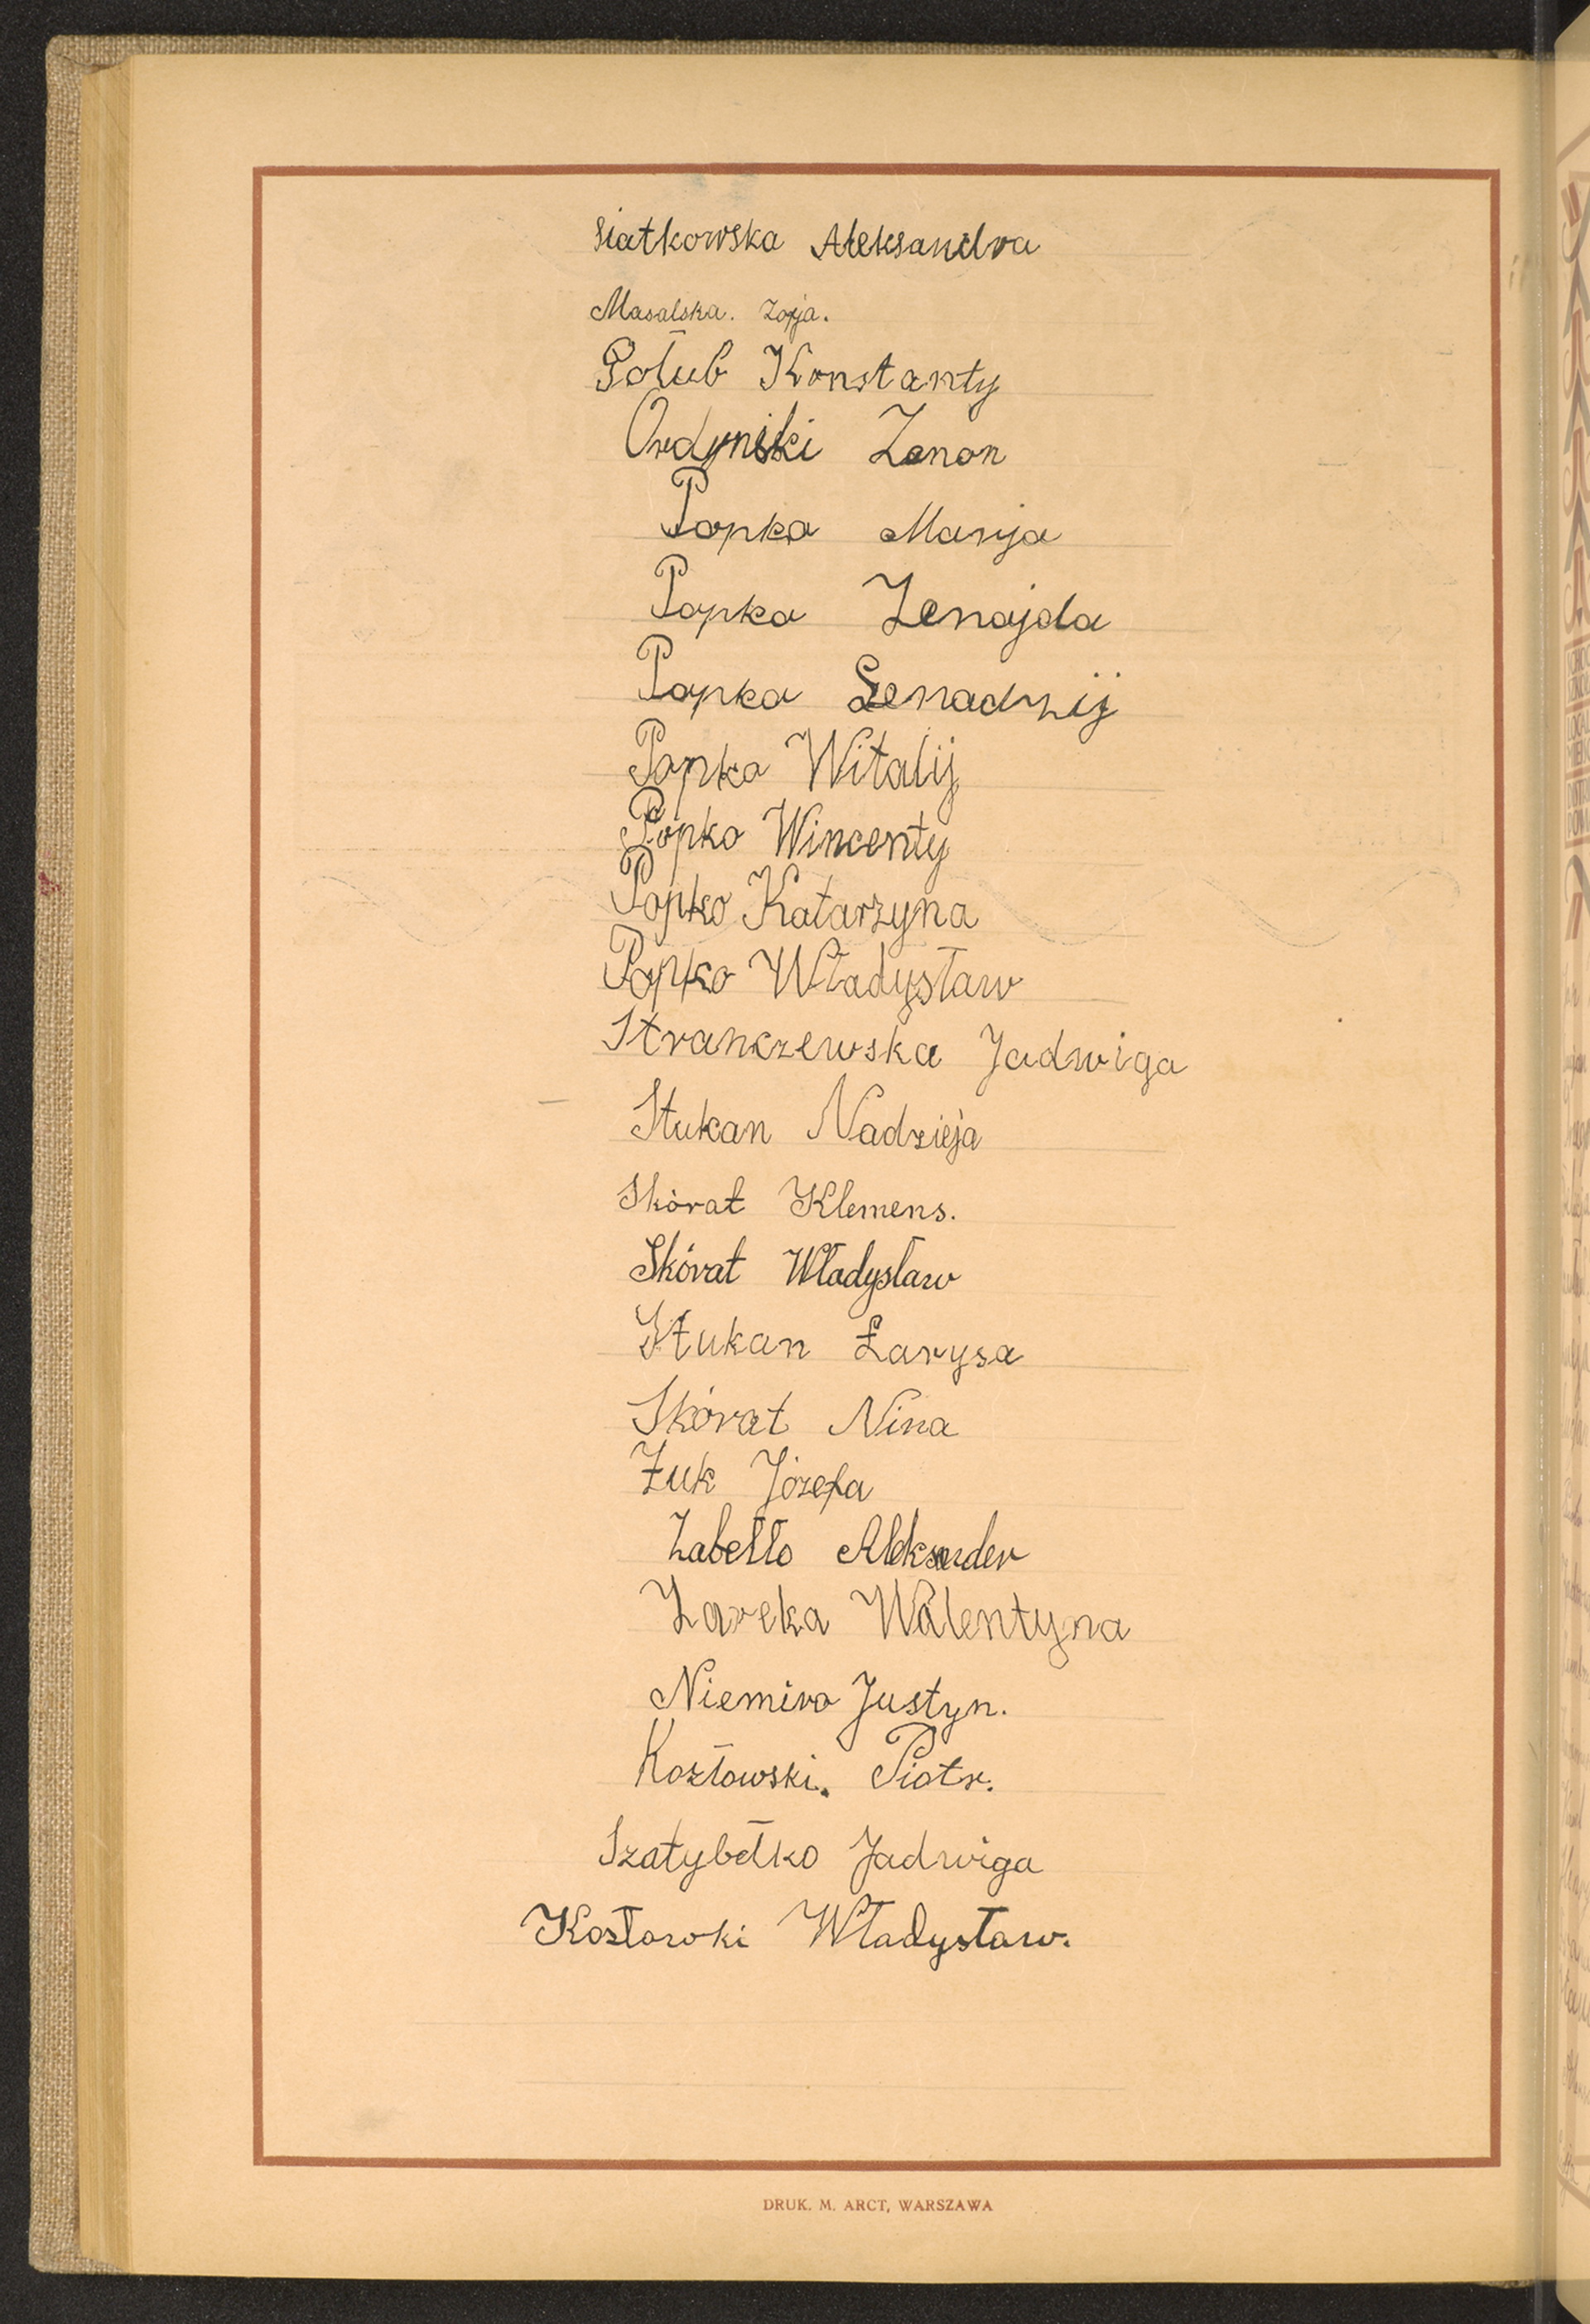 Siatkowska Aleksandra
Masalska. Zofja.
Gołub Konstanty
Ordyniski Zenon
Popko Marja
Popko Zenajda
Popko Genadzij
Popko Witalij
Popko Wincenty
Popko Katarzyna
Popko Władysław
Stranczewska Jadwiga
Stukan Nadzieja
Skórat Klemens.
Skórat Władysław
Stukan Łarysa
Skórat Nina
Żuk Józefa
Zabełło Aleksander
Zareka Walentyna
Niemiro Justyn.
Kozłowski. Piotr.
Szatybełko Jadwiga
Kozłowki Władysław.
DRUK. M. ARCT, WARSZAWA